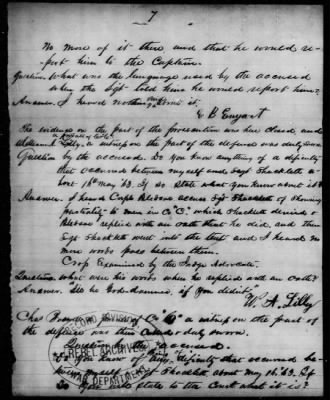 7
No more of it there and that he would re-
port him to the Captain.
Question. What was the language used by the accused
when the Sgt. told him he would report him?
Answer. I heard nothing more about it.
E B Enyart
The evidence on the part of the prosecution was here closed, and
a witness on the part of the defense was duly sworn
Question by the accused. Do you know anything of a difficulty
that occurred between myself and Sergt Shacklett a-
bout 16th May '63. If so state what you know about it?
Answer. I heard Corp. accuse Sgt. Shacklett of showing
partiality to men in Co "C." which Shacklett denied &
replied with an oath that he did, and then
Sgt Shacklett went into the tent and I heard no
more words pass between them.
Cross Examined by the Judge Advocate.
Question. What were his words when he replied with an oath?
Answer. "I'll be God-damned if you didn't."
W. A. Lilly
Chas of Co "C" a witness on the part of
the defense was then called & duly sworn.
Question by the accused.
Do you know of any difficulty that occurred be-
tween myself & Shacklett about May 16 '63. If
so you will state to the Court what it is?
RECORD DIVISION
REBEL ARCHIVES
WAR DEPARTMENT